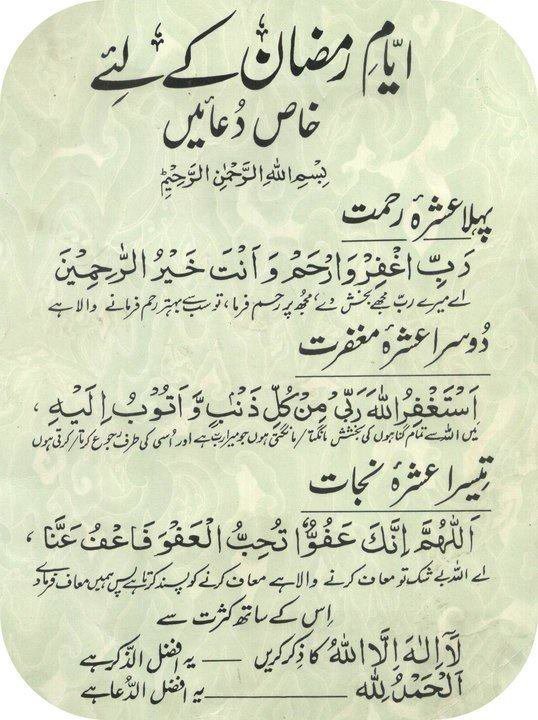 ایّامِ رمضان کے لئے
خاص دُعائیں
بِسْمِ اللهِ الرَّحْمٰنِ الرَّحِيْمِ
پہلا عشرۂ رحمت
رَبِّ اغْفِرْ وَارْحَمْ وَ اَنْتَ خَيْرُ الرّٰحِمِيْنَ
اے میرے ربّ مجھے بخش دے، مجھ پر رحم فرما، تو سب سے بہتر رحم فرمانے والا ہے
دُوسرا عشرۂ مغفرت
اَسْتَغْفِرُ اللهَ رَبِّيْ مِنْ كُلِّ ذَنْبٍ وَّ اَتُوْبُ اِلَيْهِ ،
میں اللہ سے تمام گناہوں کی بخشش مانگتا/مانگتی ہوں جو میرا ربّ ہے اور اُسی کی طرف رجوع کرتا/کرتی ہوں
تیسرا عشرۂ نجات
اَللّٰهُمَّ اِنَّكَ عَفُوٌّ تُحِبُّ الْعَفْوَ فَاعْفُ عَنَّا ،
اے اللہ بے شک تو معاف کرنے والا ہے معاف کرنے کو پسند کرتا ہے پس ہمیں معاف فرما دے
اِس کے ساتھ کثرت سے
لَآ اِلٰهَ اِلَّا اللهُ کا ذکر کریں — یہ افضل الذّکر ہے
اَلْحَمْدُ لِلّٰهِ — یہ افضل الدُّعا ہے